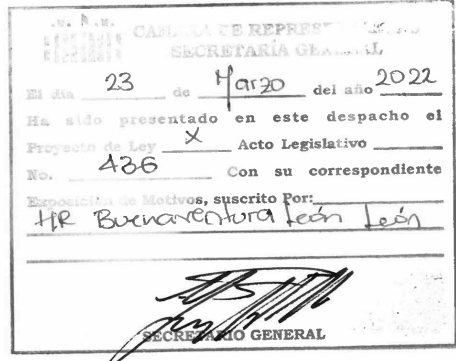 CÁMARA DE REPRESENTANTES
SECRETARÍA GENERAL
El día 23 de Marzo del año 2022
Ha sido presentado en este despacho el
Proyecto de Ley X Acto Legislativo
No. 436 Con su correspondiente
Exposición de Motivos, suscrito Por:
HR Buenaventura León León
SECRETARIO GENERAL